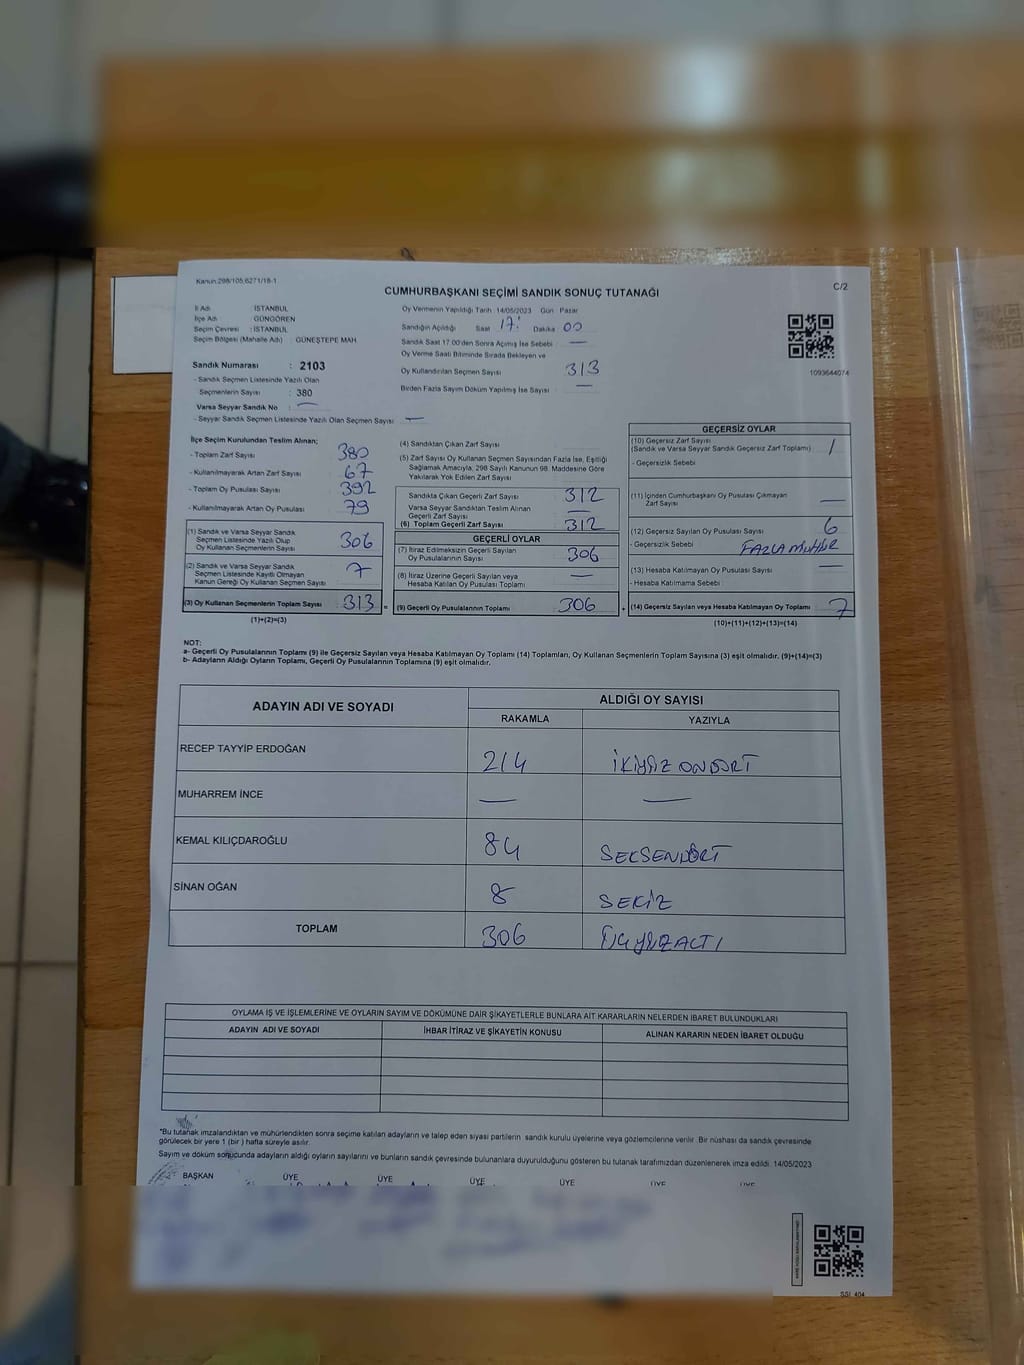 Kanun:298/105,6271/18-1
C/2
CUMHURBAŞKANI SEÇİMİ SANDIK SONUÇ TUTANAĞI
İl Adı : İSTANBUL
İlçe Adı : GÜNGÖREN
Seçim Çevresi : İSTANBUL
Seçim Bölgesi (Mahalle Adı) : GÜNEŞTEPE MAH
Sandık Numarası : 2103
- Sandık Seçmen Listesinde Yazılı Olan
Seçmenlerin Sayısı : 380
Varsa Seyyar Sandık No : —
- Seyyar Sandık Seçmen Listesinde Yazılı Olan Seçmen Sayısı : —
Oy Vermenin Yapıldığı Tarih 14/05/2023 Gün Pazar
Sandığın Açıldığı Saat 17: Dakika 00
Sandık Saat 17.00'den Sonra Açılmış İse Sebebi : —
Oy Verme Saati Bitiminde Sırada Bekleyen ve
Oy Kullandırılan Seçmen Sayısı 313
Birden Fazla Sayım Döküm Yapılmış İse Sayısı : —
1093644074
İlçe Seçim Kurulundan Teslim Alınan;
- Toplam Zarf Sayısı 380
- Kullanılmayarak Artan Zarf Sayısı 67
- Toplam Oy Pusulası Sayısı 392
- Kullanılmayarak Artan Oy Pusulası 79
(1) Sandık ve Varsa Seyyar Sandık
Seçmen Listesinde Yazılı Olup
Oy Kullanan Seçmenlerin Sayısı 306
(2) Sandık ve Varsa Seyyar Sandık
Seçmen Listesinde Kayıtlı Olmayan
Kanun Gereği Oy Kullanan Seçmen Sayısı 7
(3) Oy Kullanan Seçmenlerin Toplam Sayısı 313 =
(1)+(2)=(3)
(4) Sandıktan Çıkan Zarf Sayısı
(5) Zarf Sayısı Oy Kullanan Seçmen Sayısından Fazla İse, Eşitliği
Sağlamak Amacıyla, 298 Sayılı Kanunun 98. Maddesine Göre
Yakılarak Yok Edilen Zarf Sayısı
Sandıkta Çıkan Geçerli Zarf Sayısı 312
Varsa Seyyar Sandıktan Teslim Alınan
Geçerli Zarf Sayısı —
(6) Toplam Geçerli Zarf Sayısı 312
GEÇERLİ OYLAR
(7) İtiraz Edilmeksizin Geçerli Sayılan
Oy Pusulalarının Sayısı 306
(8) İtiraz Üzerine Geçerli Sayılan veya
Hesaba Katılan Oy Pusulası Toplamı —
(9) Geçerli Oy Pusulalarının Toplamı 306 +
GEÇERSİZ OYLAR
(10) Geçersiz Zarf Sayısı
(Sandık ve Varsa Seyyar Sandık Geçersiz Zarf Toplamı) 1
- Geçersizlik Sebebi
(11) İçinden Cumhurbaşkanı Oy Pusulası Çıkmayan
Zarf Sayısı —
(12) Geçersiz Sayılan Oy Pusulası Sayısı 6
- Geçersizlik Sebebi FAZLA MÜHÜR
(13) Hesaba Katılmayan Oy Pusulası Sayısı —
- Hesaba Katılmama Sebebi
(14) Geçersiz Sayılan veya Hesaba Katılmayan Oy Toplamı 7
(10)+(11)+(12)+(13)=(14)
NOT:
a- Geçerli Oy Pusulalarının Toplamı (9) ile Geçersiz Sayılan veya Hesaba Katılmayan Oy Toplamı (14) Toplamları, Oy Kullanan Seçmenlerin Toplam Sayısına (3) eşit olmalıdır. (9)+(14)=(3)
b- Adayların Aldığı Oyların Toplamı, Geçerli Oy Pusulalarının Toplamına (9) eşit olmalıdır.
ADAYIN ADI VE SOYADI ALDIĞI OY SAYISI
RAKAMLA YAZIYLA
RECEP TAYYİP ERDOĞAN 214 İKİYÜZ ONDÖRT
MUHARREM İNCE — —
KEMAL KILIÇDAROĞLU 84 SEKSENDÖRT
SİNAN OĞAN 8 SEKİZ
TOPLAM 306 ÜÇYÜZALTI
OYLAMA İŞ VE İŞLEMLERİNE VE OYLARIN SAYIM VE DÖKÜMÜNE DAİR ŞİKAYETLERLE BUNLARA AİT KARARLARIN NELERDEN İBARET BULUNDUKLARI
ADAYIN ADI VE SOYADI İHBAR İTİRAZ VE ŞİKAYETİN KONUSU ALINAN KARARIN NEDEN İBARET OLDUĞU
*Bu tutanak imzalandıktan ve mühürlendikten sonra seçime katılan adayların ve talep eden siyasi partilerin sandık kurulu üyelerine veya gözlemcilerine verilir. Bir nüshası da sandık çevresinde
görülecek bir yere 1 (bir ) hafta süreyle asılır.
Sayım ve döküm sonucunda adayların aldığı oyların sayılarını ve bunların sandık çevresinde bulunanlara duyurulduğunu gösteren bu tutanak tarafımızdan düzenlenerek imza edildi. 14/05/2023
BAŞKAN ÜYE ÜYE ÜYE ÜYE ÜYE ÜYE
SSİ_404